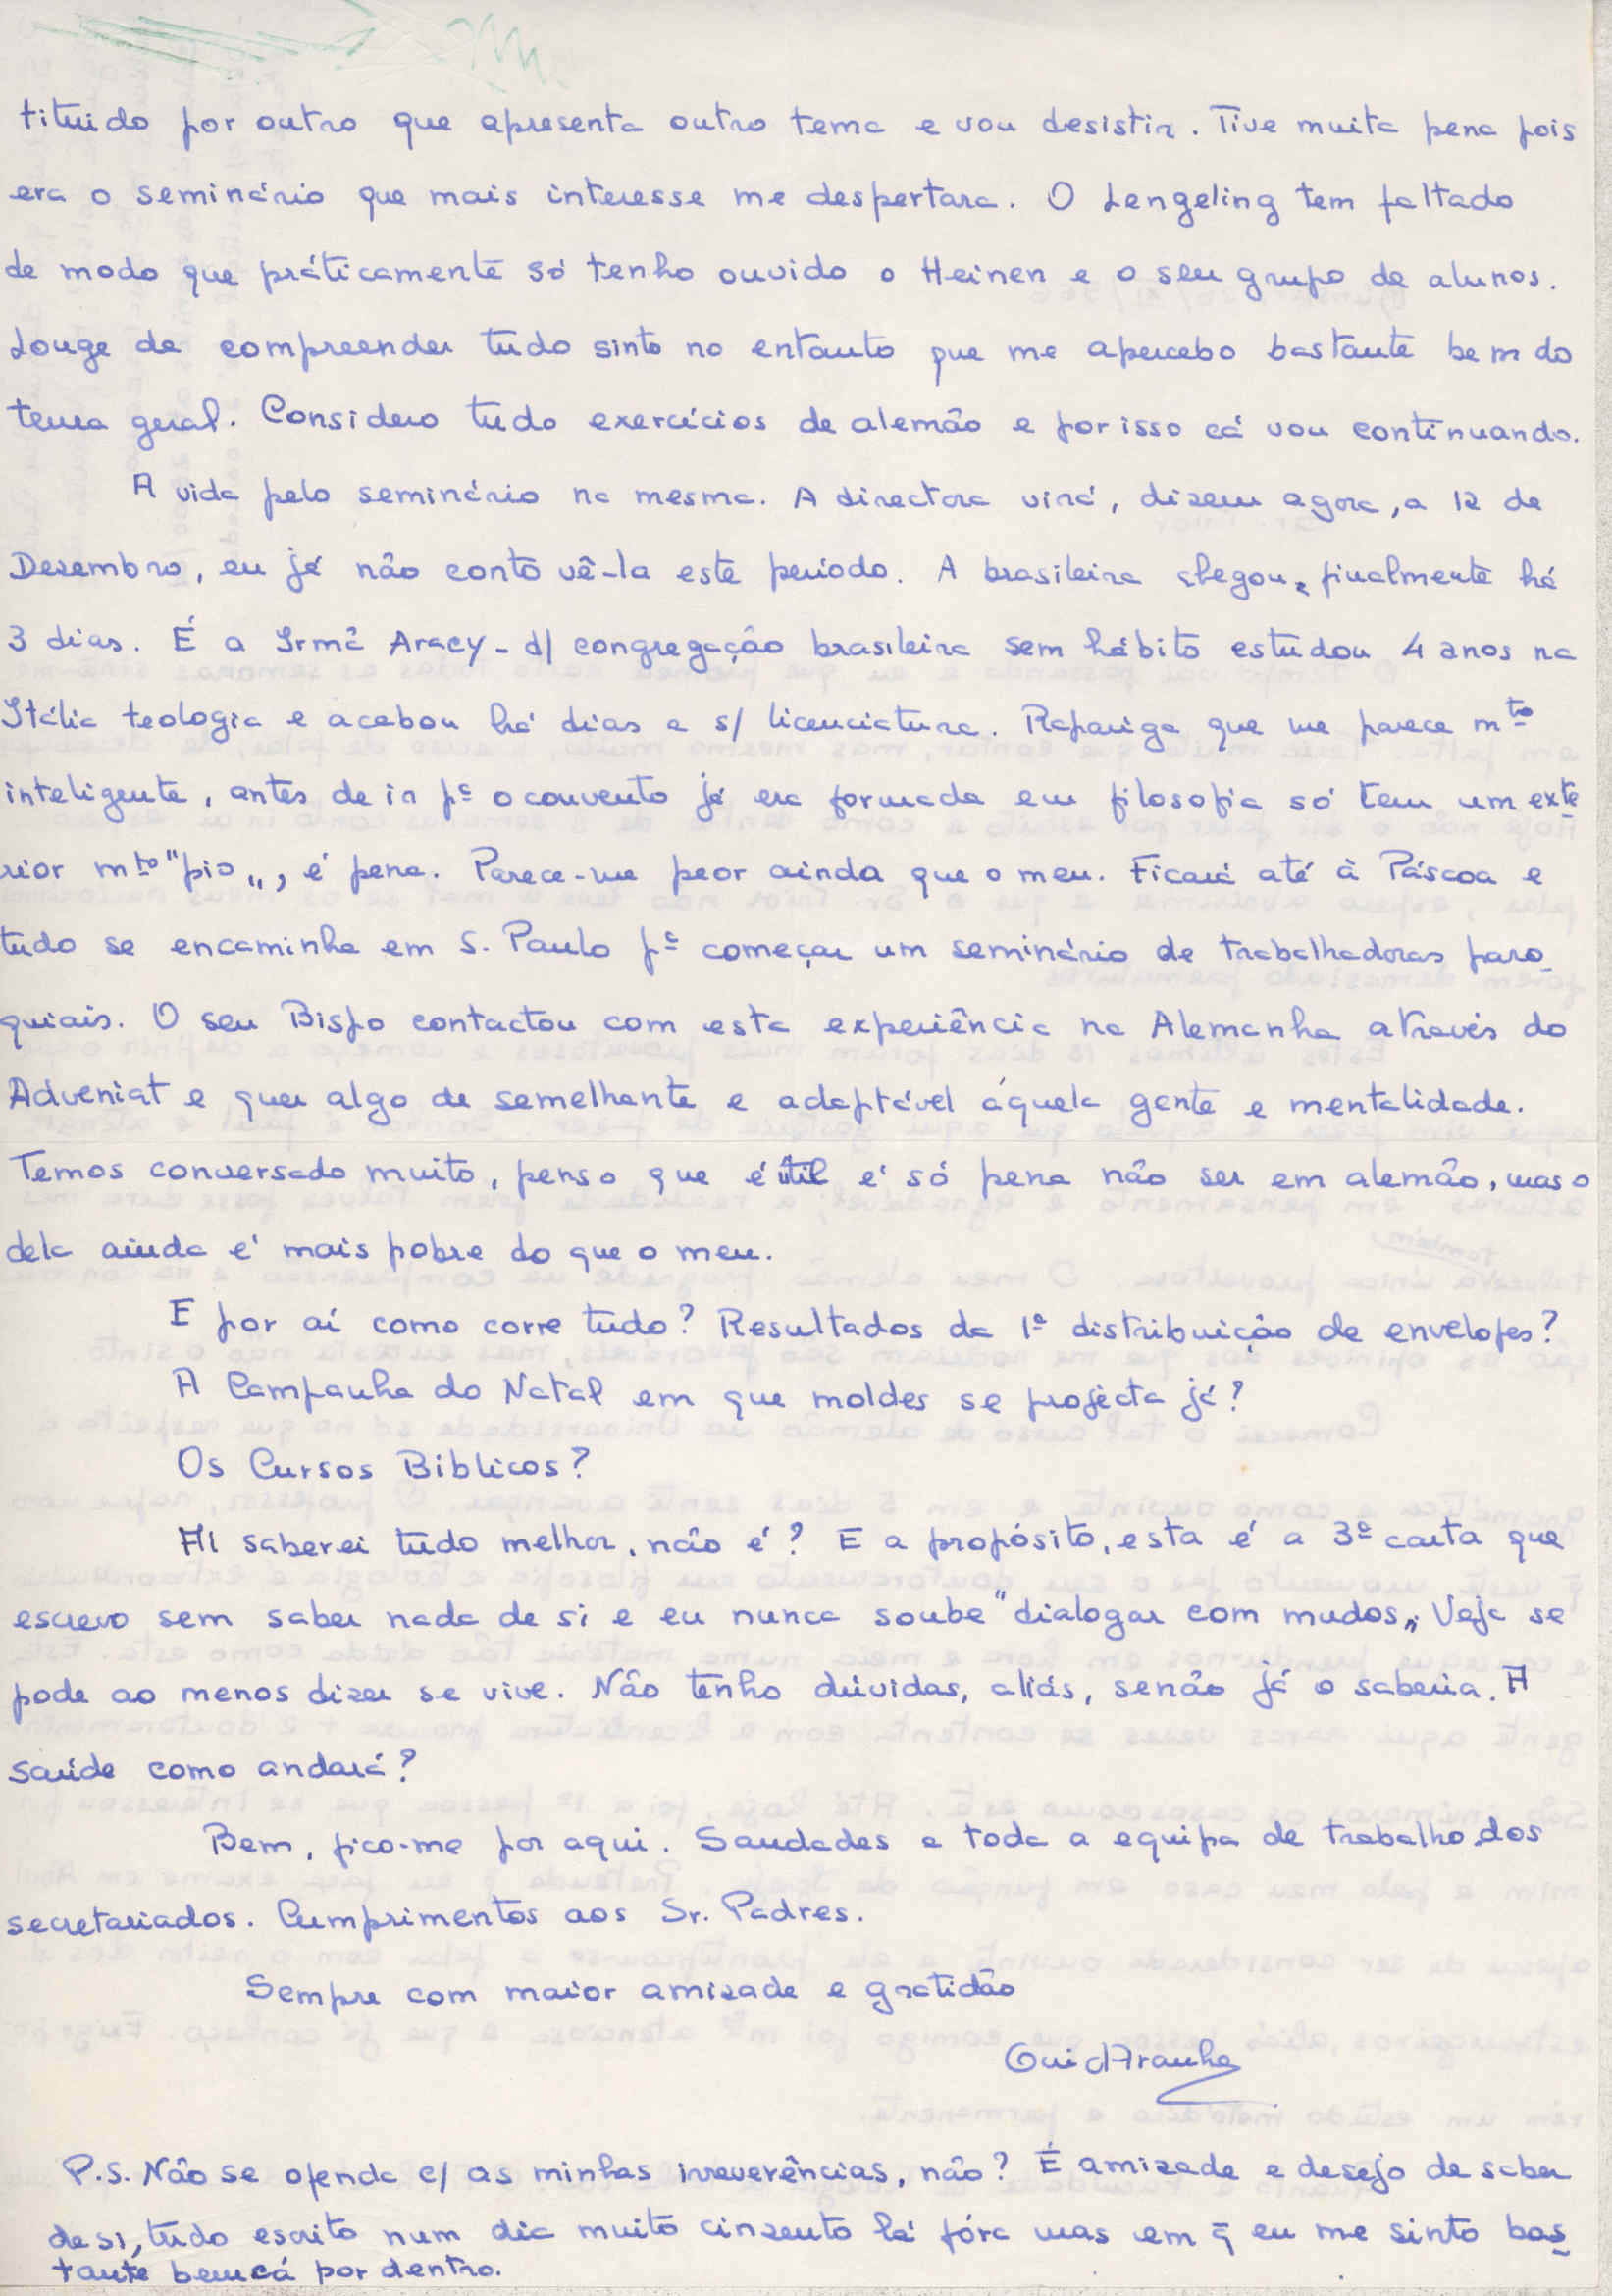 tituido por outro que apresenta outro tema e vou desistir. Tive muita pena pois
era o seminário que mais interesse me despertara. O Lengeling tem faltado
de modo que práticamente só tenho ouvido o Heinen e o seu grupo de alunos.
Longe de compreender tudo sinto no entanto que me apercebo bastante bem do
tema geral. Considero tudo exercícios de alemão e por isso cá vou continuando.
A vida pelo seminário na mesma. A directora virá, dizem agora, a 12 de
Dezembro, eu já não conto vê-la este período. A brasileira chegou, finalmente há
3 dias. É a Irmã Aracy - d/ congregação brasileira sem hábito estudou 4 anos na
Itália teologia e acabou há dias a s/ licenciatura. Rapariga que me parece mto
inteligente, antes de ir pª o convento já era formada em filosofia só tem um exte
rior mto "pio", é pena. Parece-me peor ainda que o meu. Ficará até à Páscoa e
tudo se encaminha em S. Paulo pª começar um seminário de trabalhadoras paro
quiais. O seu Bispo contactou com esta experiência na Alemanha através do
Adveniat e quer algo de semelhante e adaptável áquela gente e mentalidade.
Temos conversado muito, penso que é útil é só pena não ser em alemão, mas o
dela ainda é mais pobre do que o meu.
E por aí como corre tudo? Resultados da 1ª distribuição de envelopes?
A Campanha do Natal em que moldes se projécta já?
Os Cursos Biblicos?
Aí saberei tudo melhor, não é? E a propósito, esta é a 3ª carta que
escrevo sem saber nada de si e eu nunca soube "dialogar com mudos". Veja se
pode ao menos dizer se vive. Não tenho dúvidas, aliás, senão já o saberia. A
saúde como andará?
Bem, fico-me por aqui. Saudades a toda a equipa de trabalho dos
secretariados. Cumprimentos aos Sr. Padres.
Sempre com maior amizade e gratidão
Gui dAranha
P.S. Não se ofenda c/ as minhas irreverências, não? É amizade e desejo de saber
de si, tudo escrito num dia muito cinzento lá fóra mas em q̄ eu me sinto bas
tante bem cá por dentro.